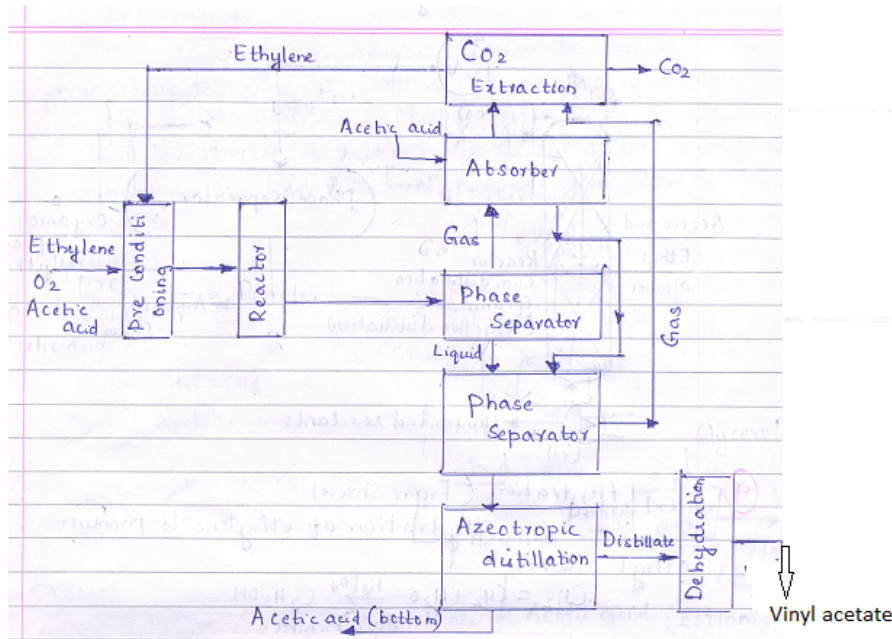 Ethylene
CO2
Extraction
CO2
Acetic acid
Absorber
Ethylene
O2
Acetic
acid
Pre Conditi
oning
Reactor
Gas
Phase
Separator
Liquid
Gas
Phase
Separator
Azeotropic
distillation
Distillate
Dehydration
Vinyl acetate
Acetic acid (bottom)